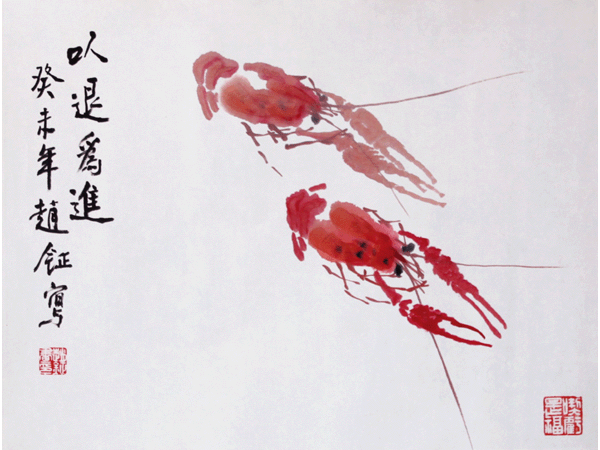 以退爲進
癸未年趙鉦寫